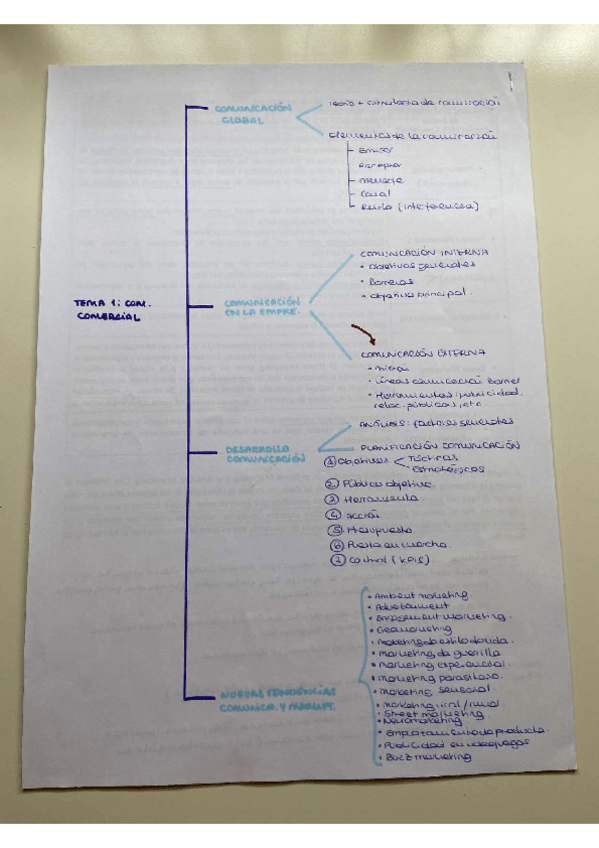 COMUNICACIÓN
GLOBAL
Teoría + comunicación
Elementos de la comunicación
Emisor
Receptor
Mensaje
Canal
Ruido (interferencia)
TEMA 1: COM.
COMERCIAL
COMUNICACIÓN
EN LA EMPRE.
COMUNICACIÓN INTERNA
• Objetivos generales
• Barreras
• Objetivo principal.
COMUNICACIÓN EXTERNA
• Líneas comunicación
• Herramientas: publicidad,
relac. públicas, etc.
DESARROLLA
COMUNICACIÓN
ANÁLISIS: factores generales
PLANIFICACIÓN COMUNICACIÓN
① Objetivos < Tácticos
Estratégicos
② Público objetivo
③ Herramienta
④ Acción
⑤ Presupuesto
⑥ Puesta en marcha.
⑦ Control (KPIs)
NUEVAS TENDENCIAS
COMUNICA. Y MARKET.
• Ambient marketing
• Advertainment
• Engagement marketing.
• Geomarketing
• Marketing de estilo de vida.
• Marketing de guerrilla
• Marketing experiencial.
• Marketing parasitario.
• Marketing sensorial.
• Marketing viral / rumor
• Street marketing.
• Neuromarketing
• Emplazamiento de producto.
• Publicidad en videojuegos
• Buzz marketing